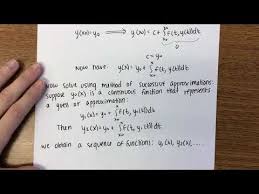 y(x₀) = y₀ ⟹ y(x₀) = c + ∫ₓ₀ˣ⁰ f(t, y(t))dt
0
c = y₀
Now have: y(x) = y₀ + ∫ₓ₀ˣ f(t, y(t))dt
Now solve using method of successive approximations:
suppose y₀(x) is a continuous function that represents
a guess or approximation:
y₁(x) = y₀ + ∫ₓ₀ˣ f(t, y₀(t))dt
Then y₂(x) = y₀ + ∫ₓ₀ˣ f(t, y₁(t))dt
we obtain a sequence of functions: y₁(x), y₂(x), ....